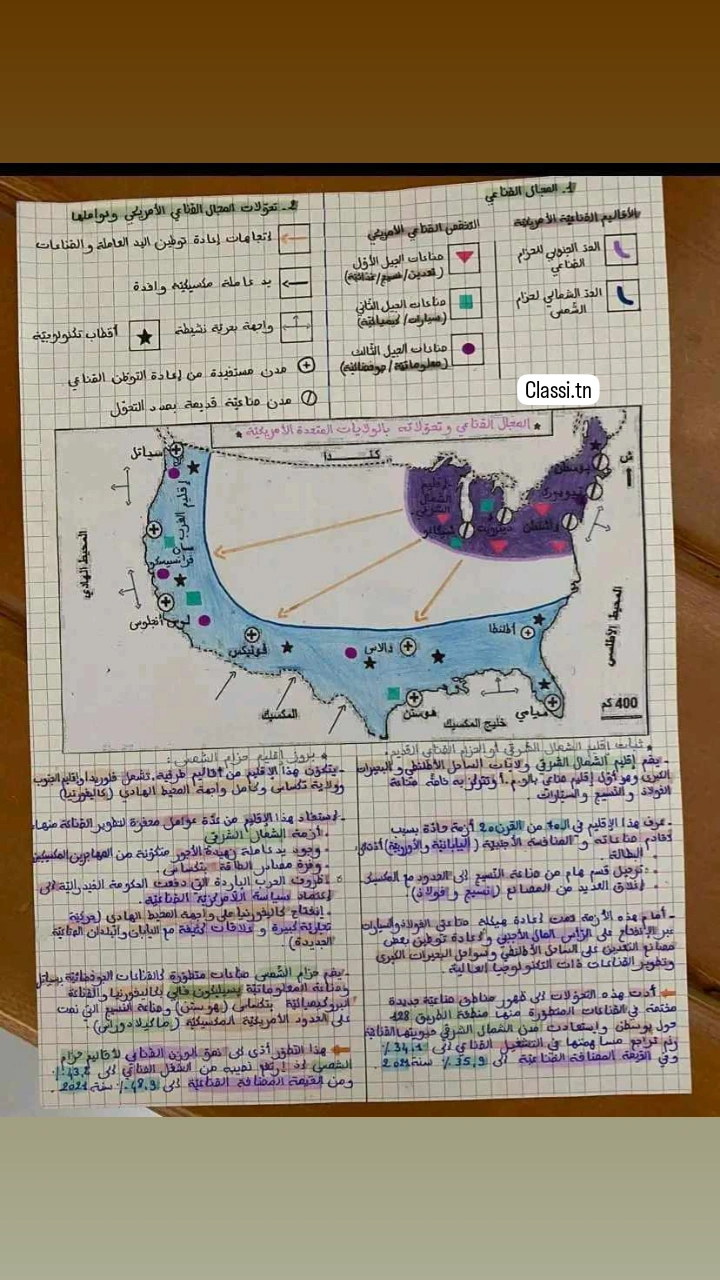 1. المجال الصناعي
الأقاليم الصناعية الأمريكية
الحد الجنوبي للحزام
الصناعي
الحد الشمالي لحزام
الشمس
التخصص الصناعي الأمريكي
صناعات الجيل الأول
(تعدين/نسيج/غذائية)
صناعات الجيل الثاني
(سيارات/كيميائية)
صناعات الجيل الثالث
(معلوماتية/جوفضائية)
2. تحولات المجال الصناعي الأمريكي وعواملها
اتجاهات إعادة توطين اليد العاملة والصناعات
يد عاملة مكسيكية وافدة
واجهة بحرية نشيطة
أقطاب تكنولوجية
مدن مستفيدة من إعادة التوطن الصناعي
مدن صناعية قديمة بصدد التحول
Classi.tn
المجال الصناعي وتحولاته بالولايات المتحدة الأمريكية
كنــدا
ش
سياتل
إقليم الغرب
المحيط الهادي
لوس أنجلوس
فونيكس
دالاس
هوستن
المكسيك
خليج المكسيك
ميامي
أطلنطا
المحيط الأطلسي
400 كم
إقليم
الشمال
الشرقي
شيكاغو
ديترويت
بوسطن
نيويورك
واشنطن
ثبات إقليم الشمال الشرقي أو الحزام الصناعي القديم:
- يضم إقليم الشمال الشرقي ولايات الساحل الأطلنطي والبحيرات
الكبرى وهو أول إقليم صناعي بالو.م.أ وتتركز به خاصة صناعة
الفولاذ والنسيج والسيارات.
- عرف هذا الإقليم في الـ70 من القرن 20 أزمة حادة بسبب
تقادم صناعاته والمنافسة الأجنبية (اليابانية والأوروبية)
البطالة.
ترحيل قسم هام من صناعة النسيج إلى الحدود مع المكسيك
إغلاق العديد من المصانع (نسيج وفولاذ)
- أمام هذه الأزمة تمت إعادة هيكلة صناعتي الفولاذ والسيارات
عبر الانفتاح على الرأس المال الأجنبي وإعادة توطين بعض
مصانع التعدين على الساحل الأطلنطي وسواحل البحيرات الكبرى
وتطوير الصناعات ذات التكنولوجيا العالية.
أدت هذه التحولات إلى ظهور مناطق صناعية جديدة
مختصة في الصناعات المتطورة منها منطقة الطريق 128
حول بوسطن واستعادت مدن الشمال الشرقي حيويتها الصناعية
رغم تراجع مساهمتها في التشغيل الصناعي إلى 34,1٪
وفي القيمة المضافة الصناعية إلى 35,9٪ سنة 2021.
بروز إقليم حزام الشمس:
- يتكون هذا الإقليم من أقاليم طرفية تشمل فلوريدا وإقليم الجنوب
وولاية تكساس وكامل واجهة المحيط الهادي (كاليفورنيا)
- استفاد هذا الإقليم من عدة عوامل محفزة لتطوير الصناعة منها:
أزمة الشمال الشرقي
وجود يد عاملة زهيدة الأجور متكونة من المهاجرين المكسيكيين
وفرة مصادر الطاقة بتكساس.
ظروف الحرب الباردة التي دفعت الحكومة الفيدرالية إلى
اعتماد سياسة اللامركزية الصناعية.
انفتاح كاليفورنيا على واجهة المحيط الهادي (حركية
تجارية كبيرة وعلاقات كثيفة مع اليابان والبلدان الصناعية
الجديدة)
- يضم حزام الشمس صناعات متطورة كالصناعات الجوفضائية بسياتل
وصناعة المعلوماتية بسيليكون فالي بكاليفورنيا والصناعة
البتروكيميائية بتكساس (هوستن) وصناعة النسيج التي نمت
على الحدود الأمريكية المكسيكية (ماكيلادوراس).
هذا التطور أدى إلى نمو الوزن الصناعي لأقاليم حزام
الشمس إذ ارتفع نصيبه من الشغل الصناعي إلى 43,2٪
ومن القيمة المضافة الصناعية إلى 48,9٪ سنة 2021.